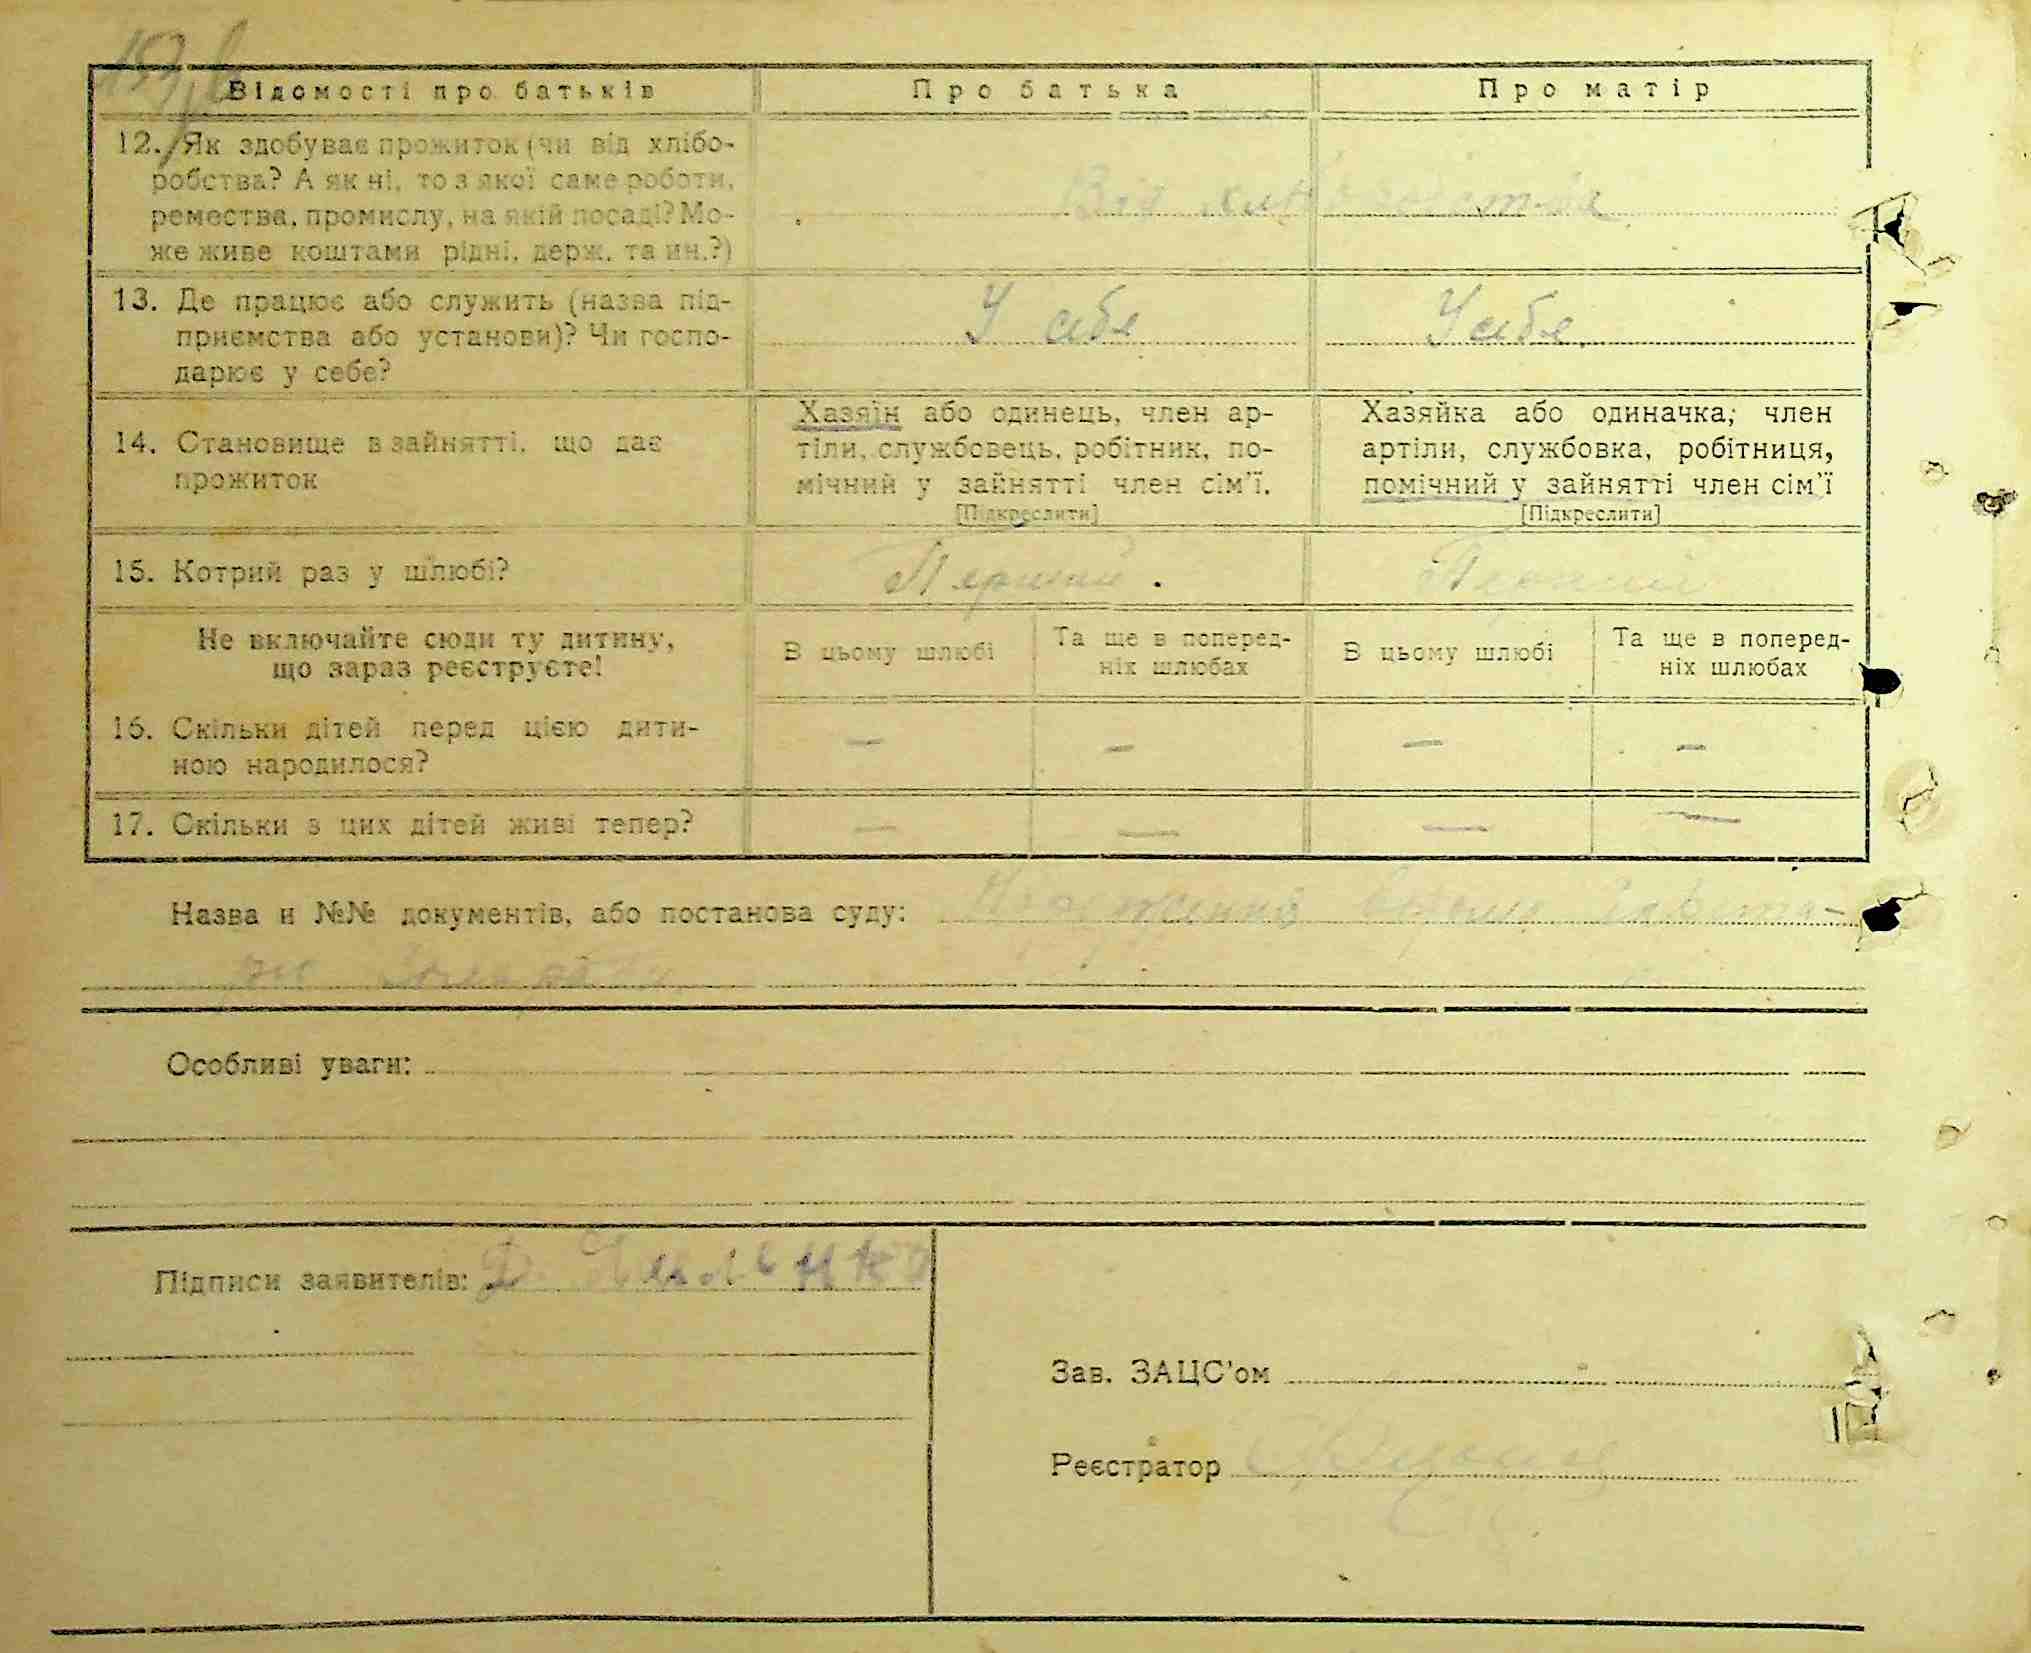 Відомості про батьків Про батька Про матір
12. Як здобуває прожиток (чи від хлібо-
робства? А як ні, то з якої саме роботи,
ремества, промислу, на якій посаді? Мо-
же живе коштами рідні, держ. та ин.?)
Від хліборобства
13. Де працює або служить (назва під-
приємства або установи)? Чи госпо-
дарює у себе?
У себе У себе
14. Становище в зайнятті, що дає
прожиток
Хазяїн або одинець, член ар-
тіли, службовець, робітник, по-
мічний у зайнятті член сім'ї.
[Підкреслити]
Хазяйка або одиначка, член
артіли, службовка, робітниця,
помічний у зайнятті член сім'ї
[Підкреслити]
15. Котрий раз у шлюбі? Перший. Перший
Не включайте сюди ту дитину,
що зараз реєструєте!
В цьому шлюбі
Та ще в поперед-
ніх шлюбах
В цьому шлюбі
Та ще в поперед-
ніх шлюбах
16. Скільки дітей перед цією дити-
ною народилося?
— — — —
17. Скільки з цих дітей живі тепер?
— — — —
Назва и №№ документів, або постанова суду:
Особливі уваги:
Підписи заявителів:
Зав. ЗАЦС'ом
Реєстратор